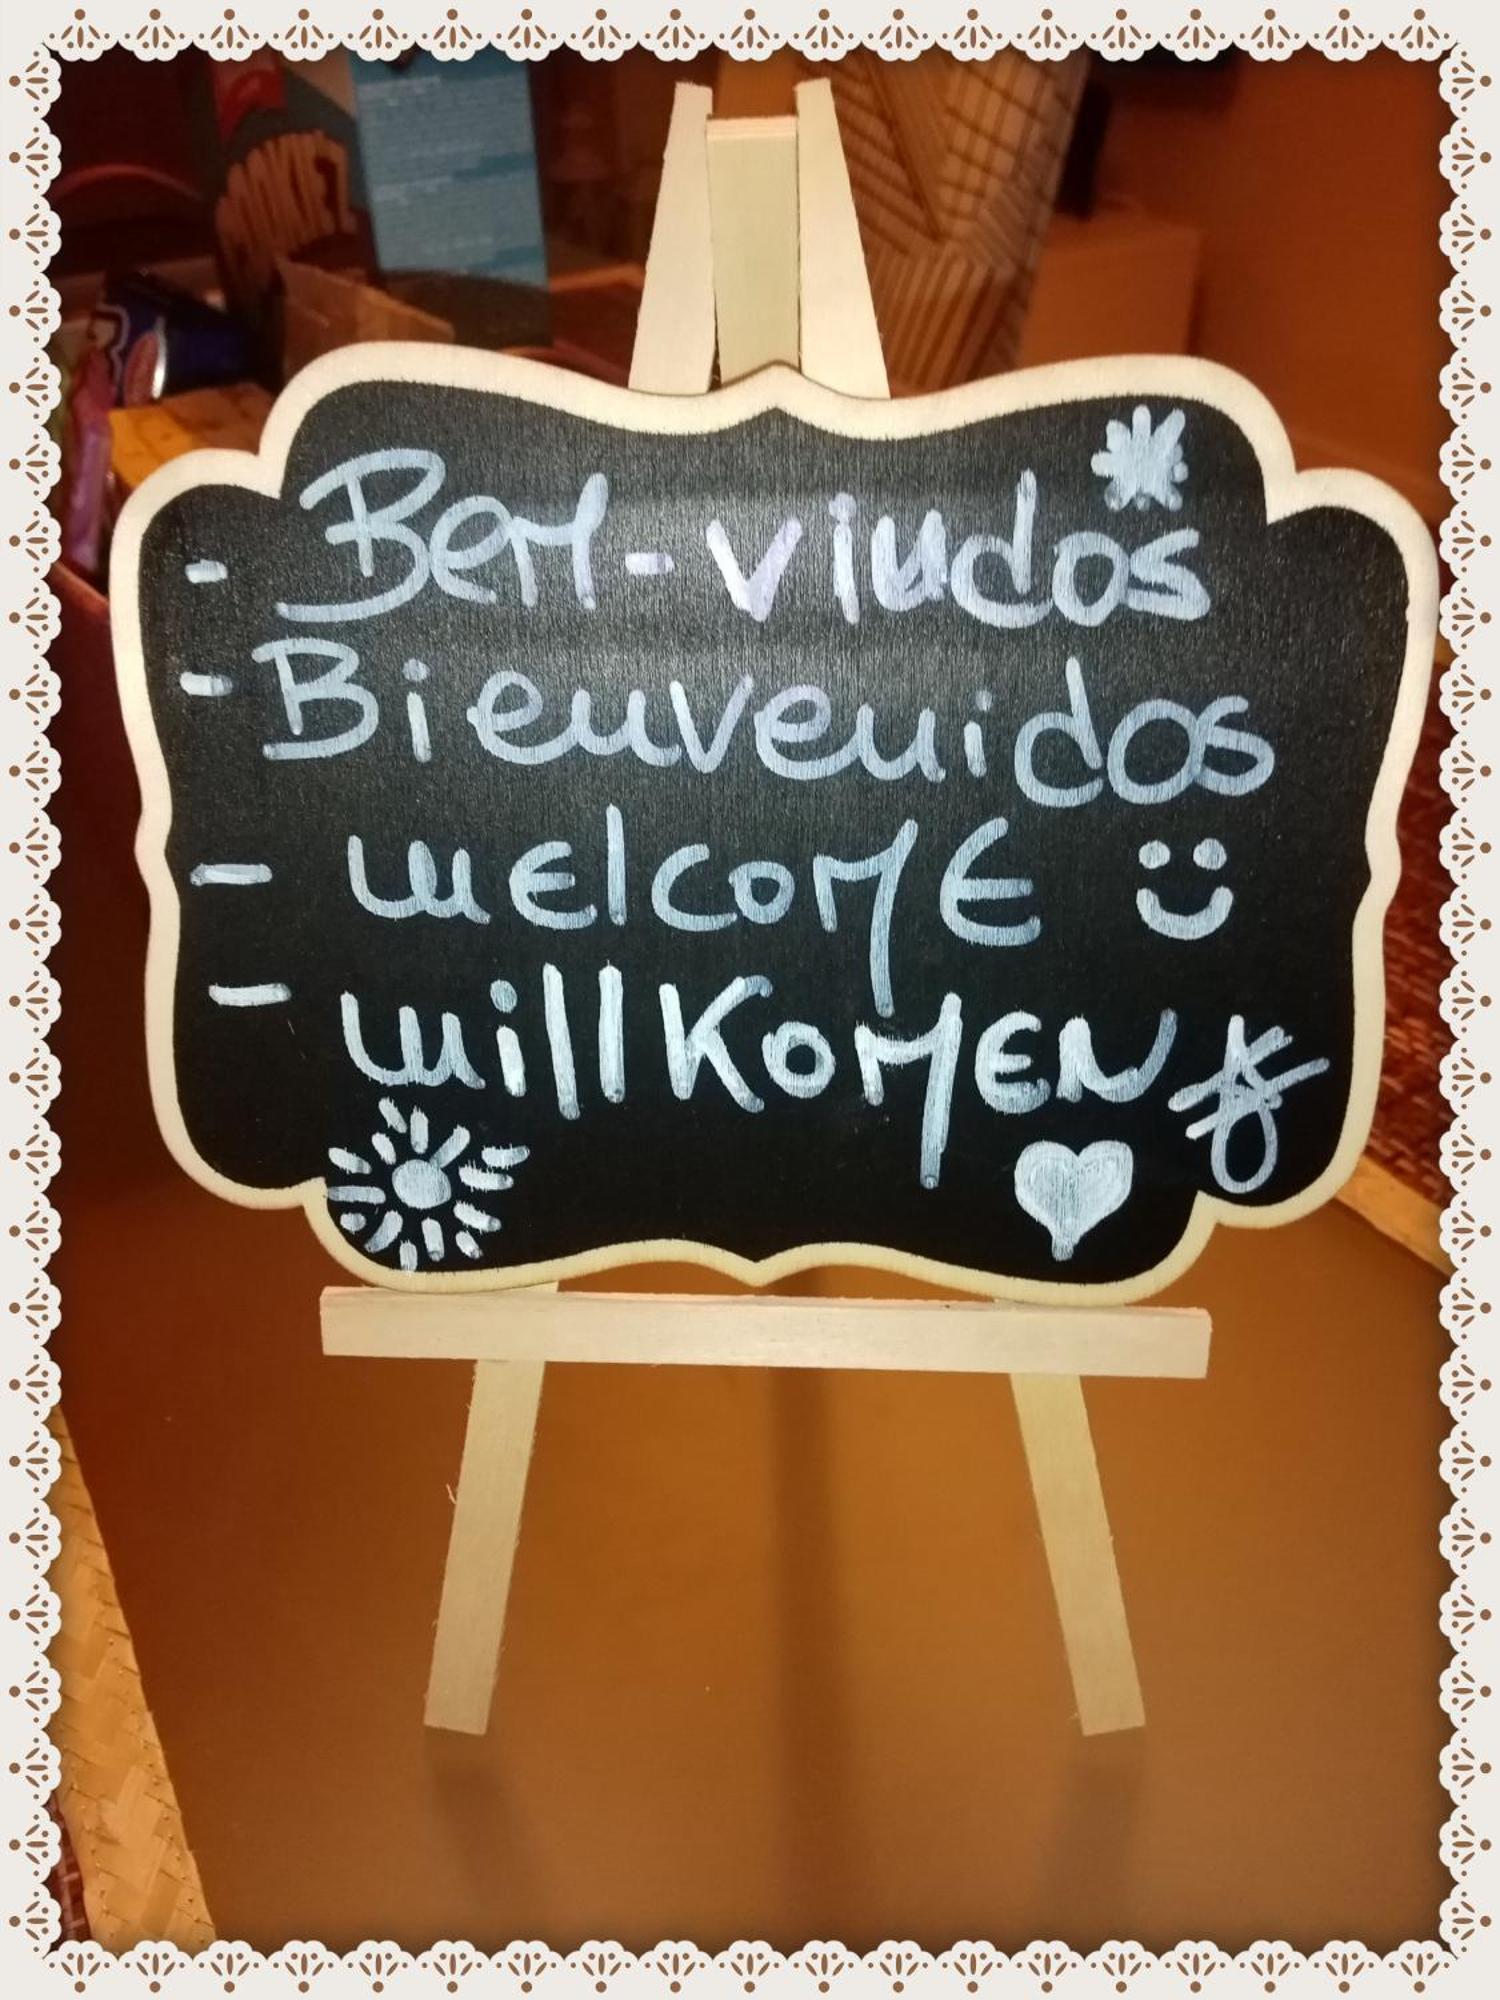 - Bem-vindos
- Bienvenidos
- welcome
- willkomen